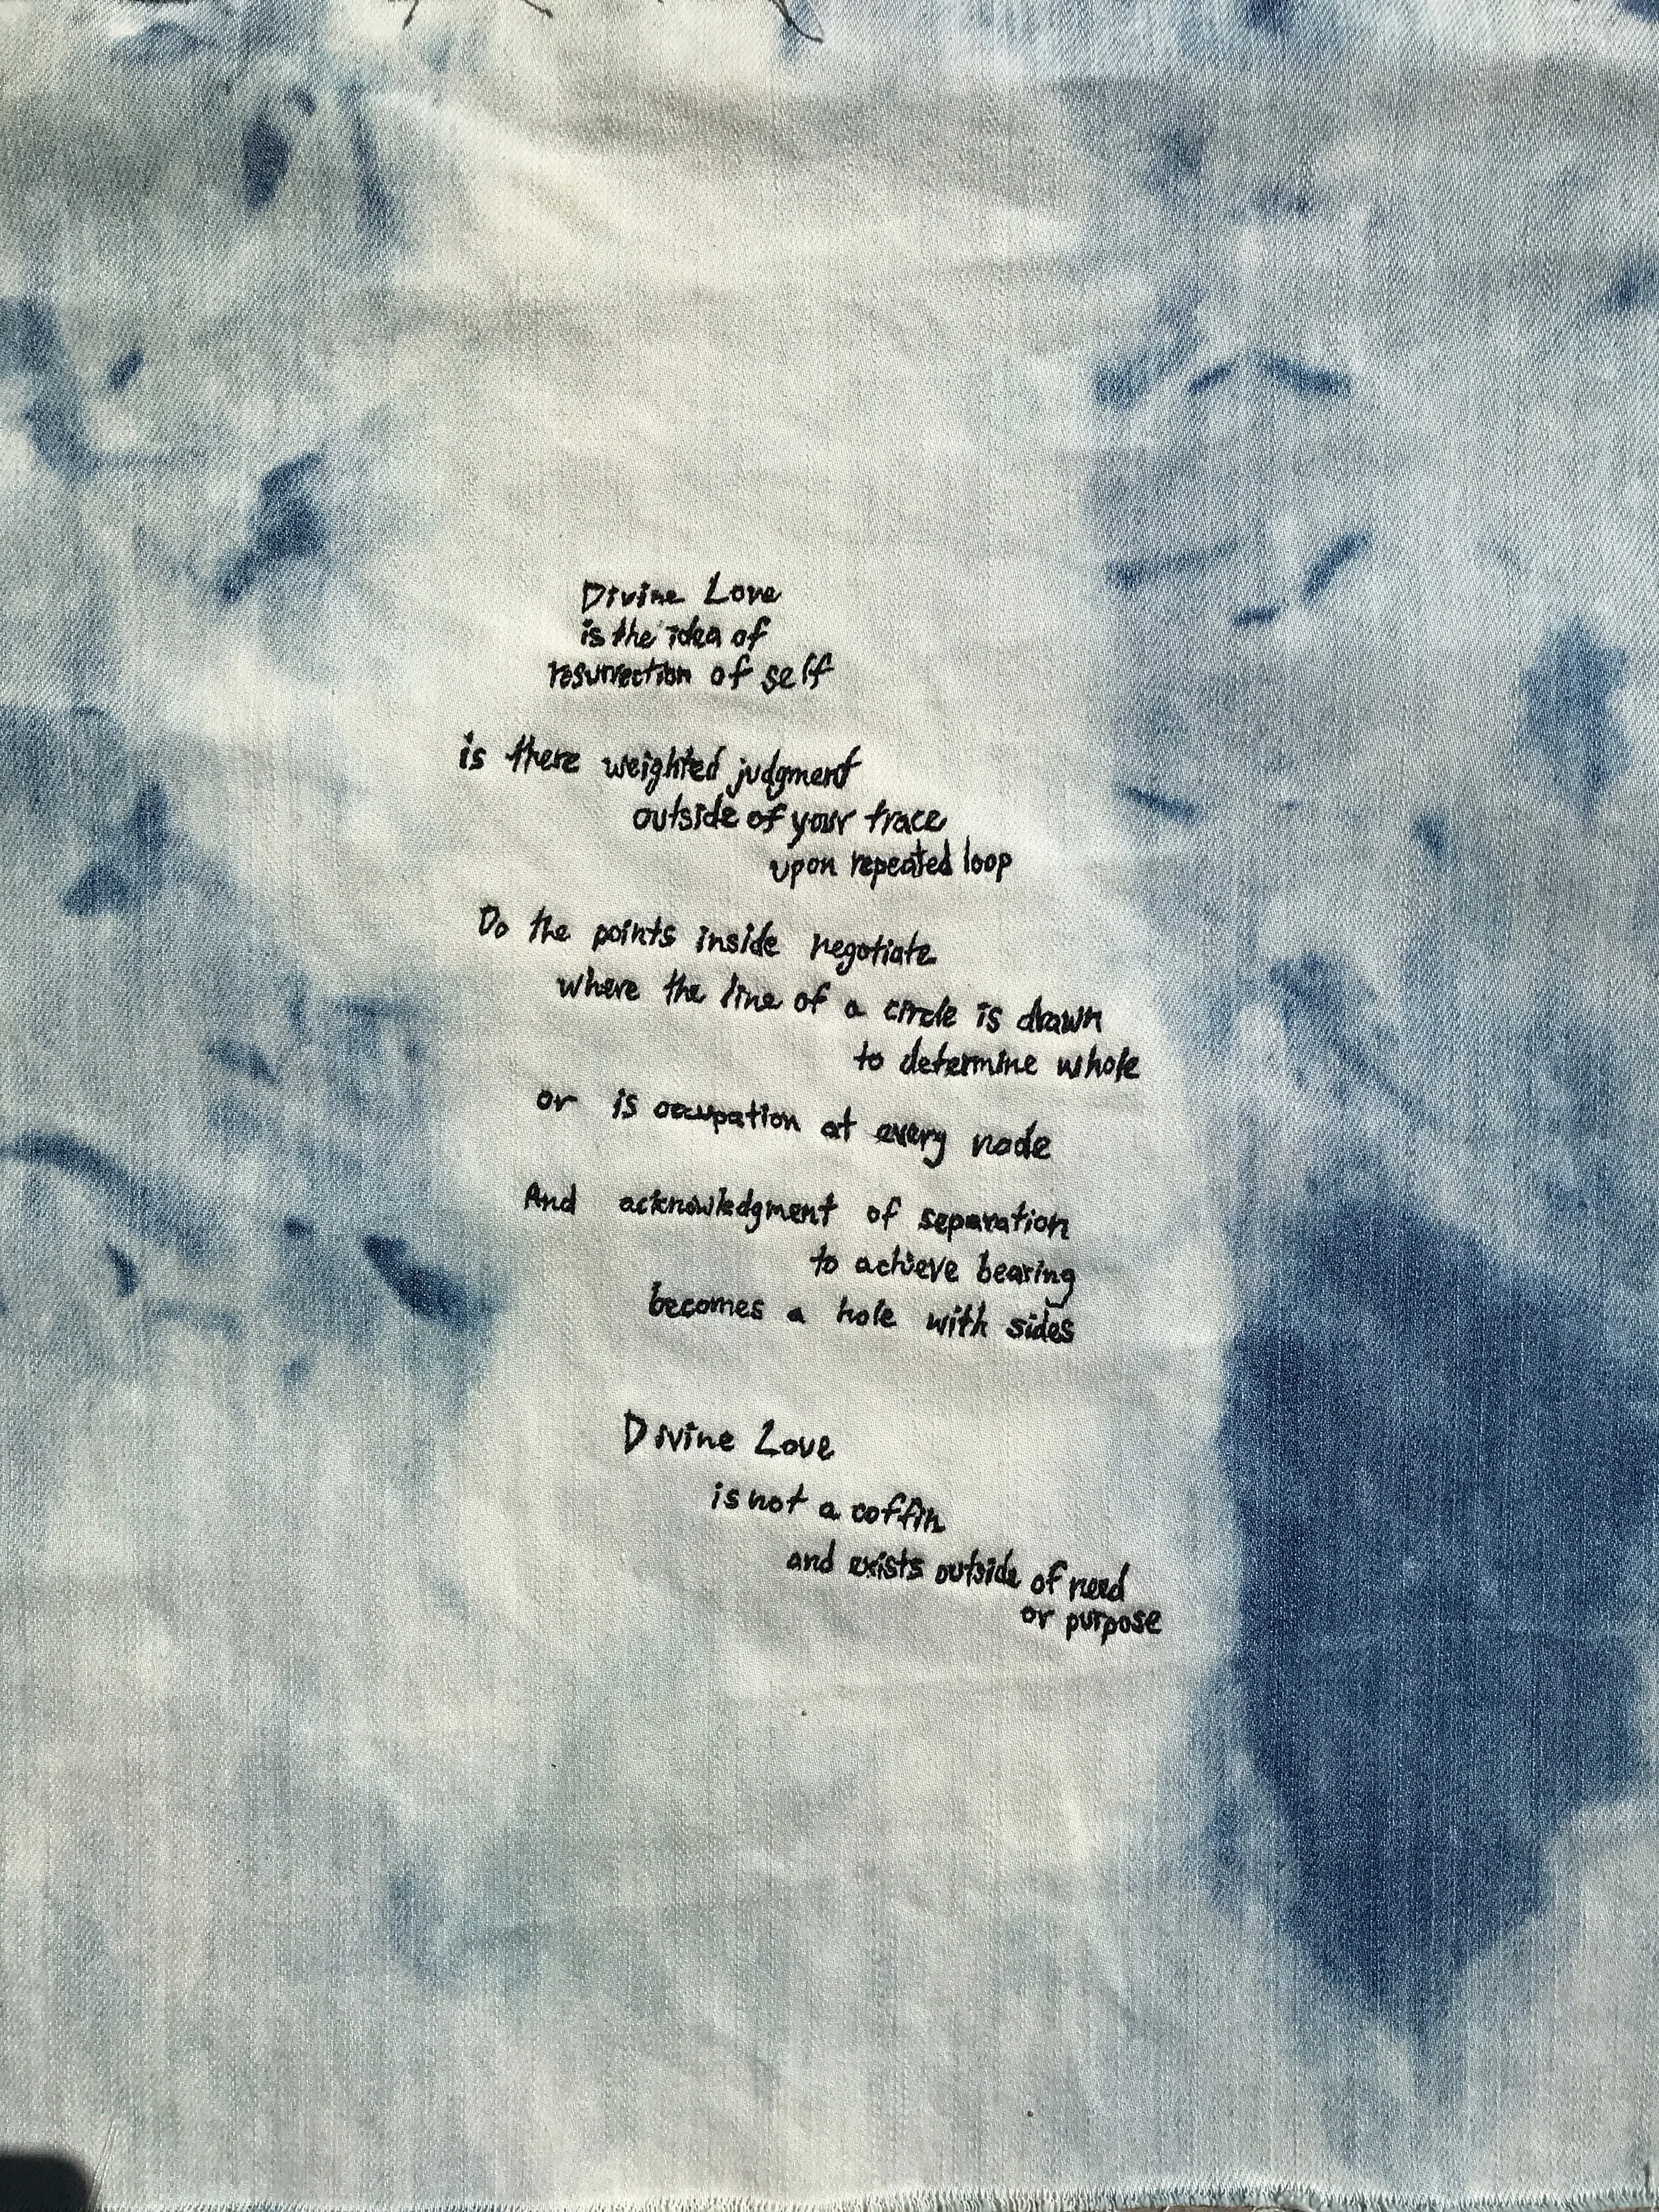 Divine Love
is the idea of
resurrection of self
is there weighted judgment
outside of your trace
upon repeated loop
Do the points inside negotiate
where the line of a circle is drawn
to determine whole
or is occupation at every node
And acknowledgment of separation
to achieve bearing
becomes a hole with sides
Divine Love
is not a coffin
and exists outside of need
or purpose